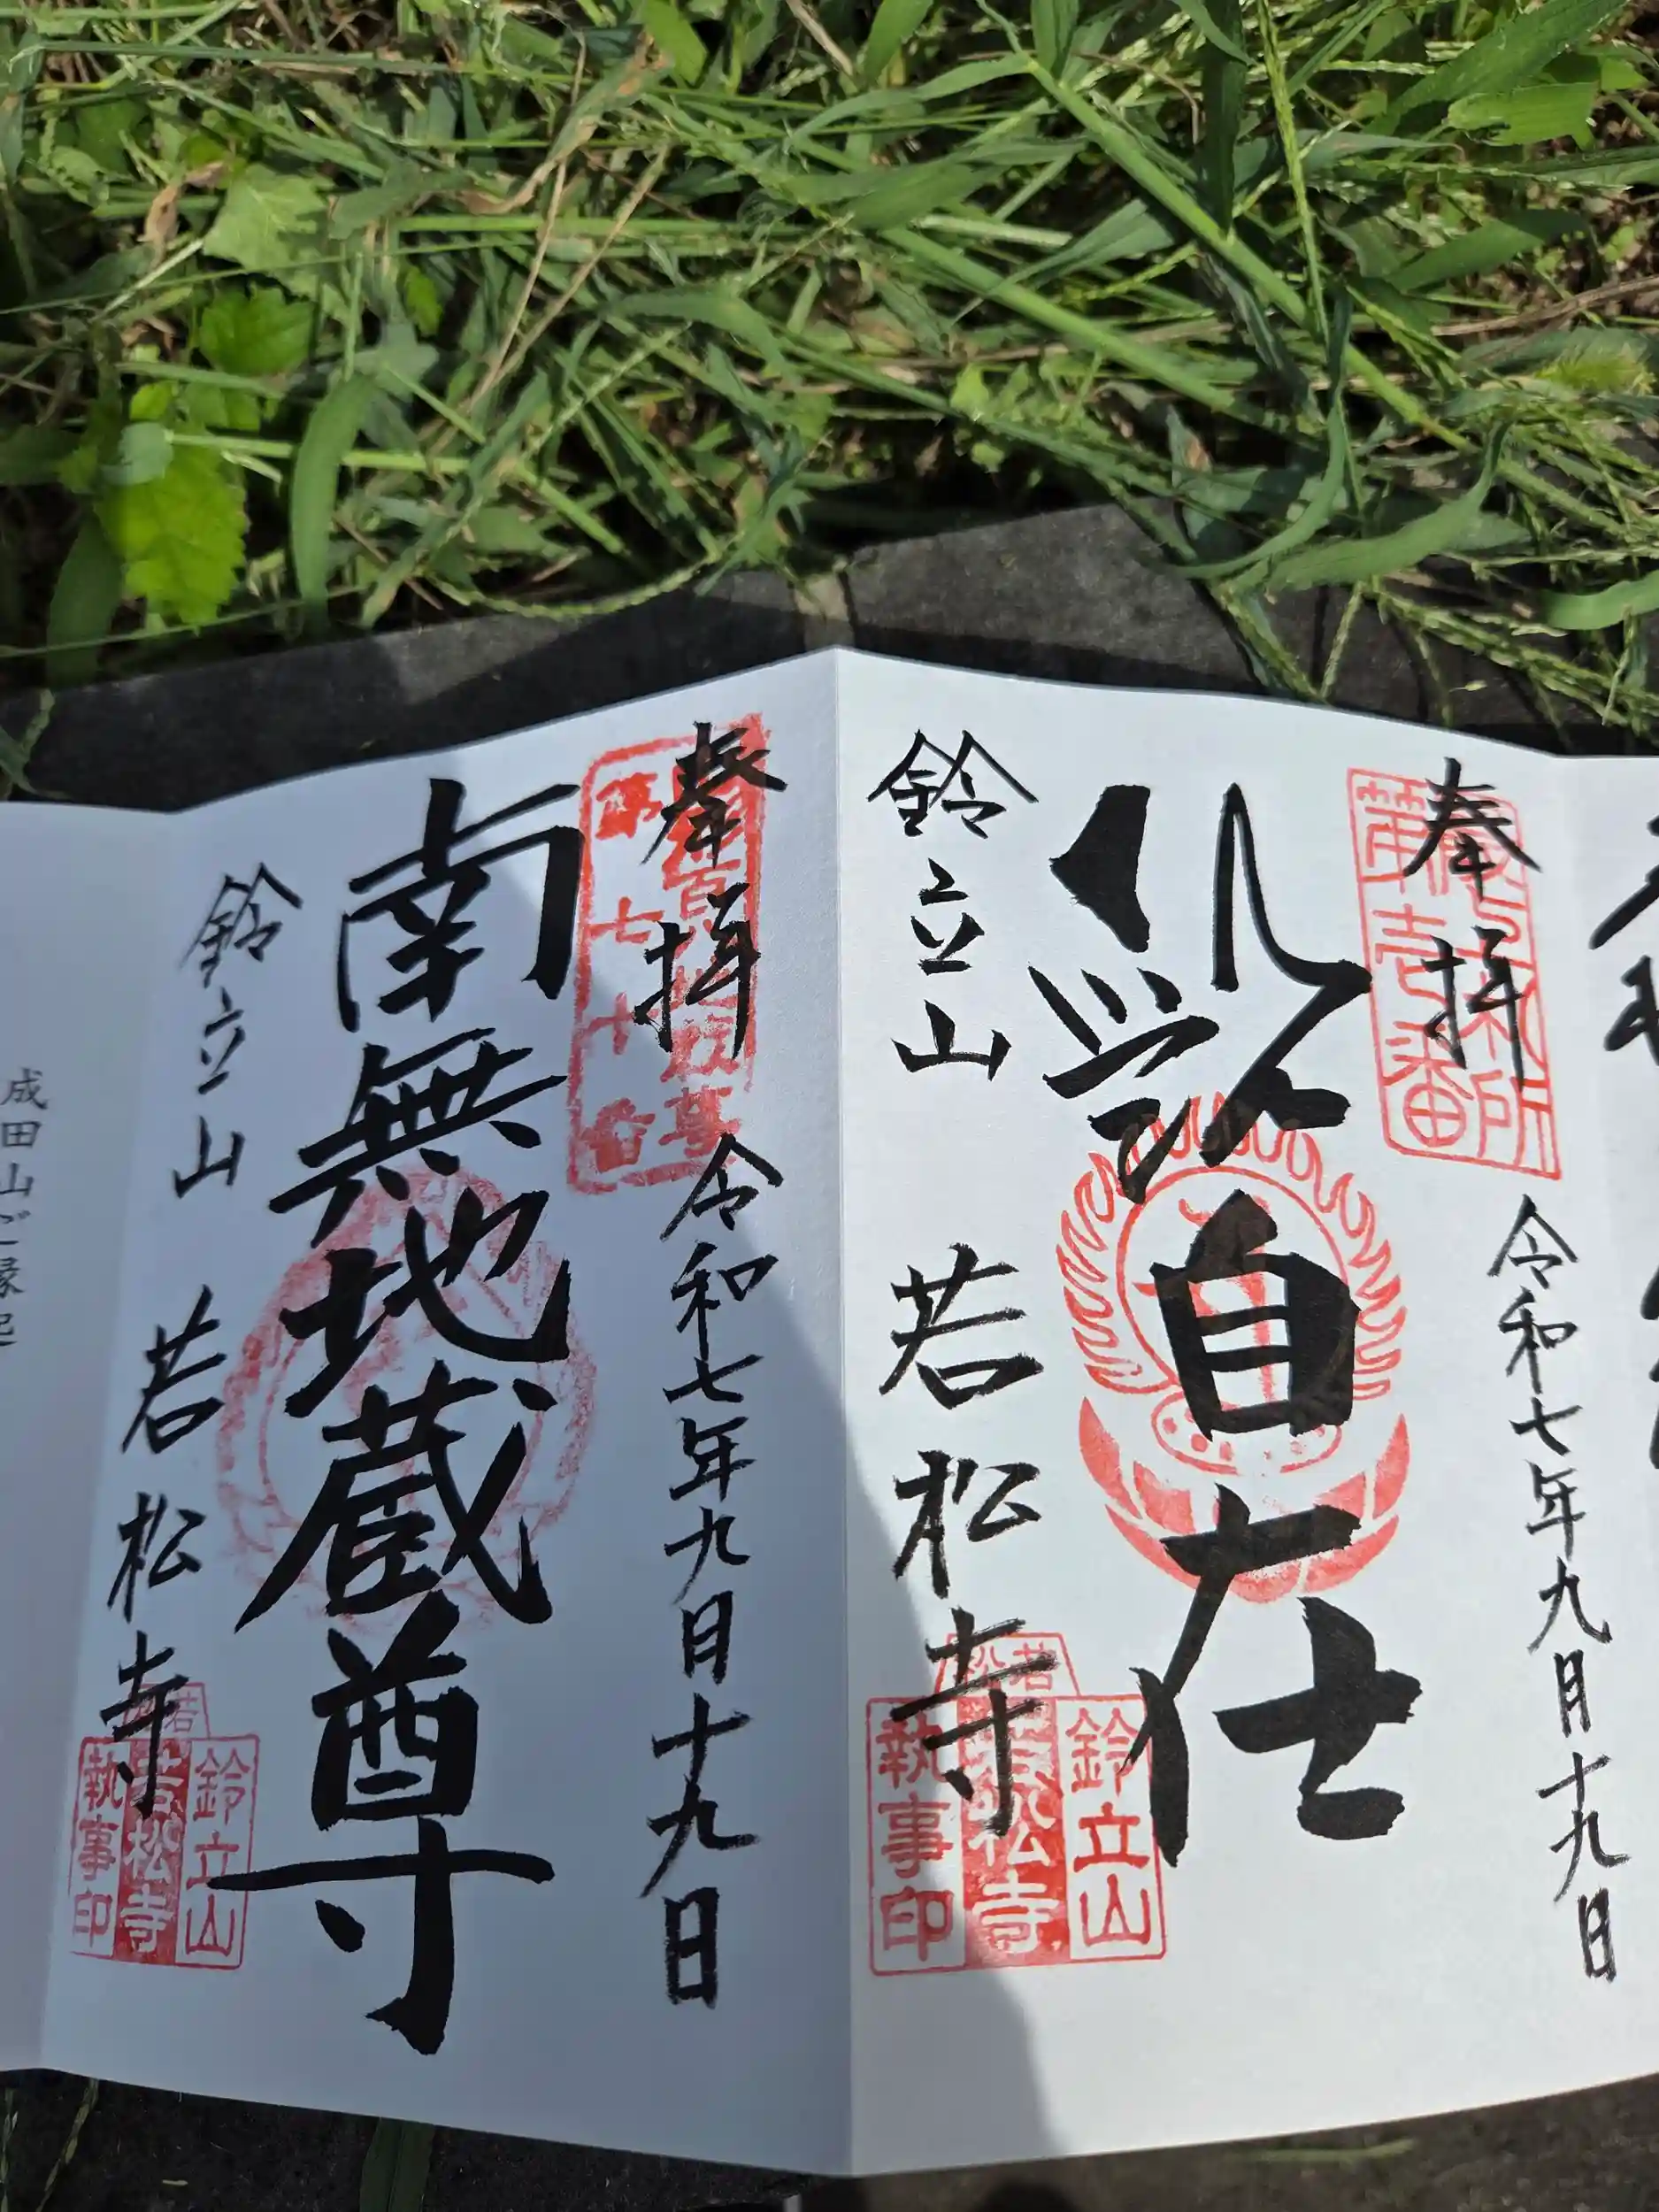 奉拝
第壱番
札所
令和七年九月十九日
自在
鈴立山
若松寺
鈴立山
若松寺
執事印
奉拝
第七十番
百地蔵尊
令和七年九月十九日
南無地蔵尊
鈴立山
若松寺
鈴立山
若松寺
執事印
成田山ご縁起